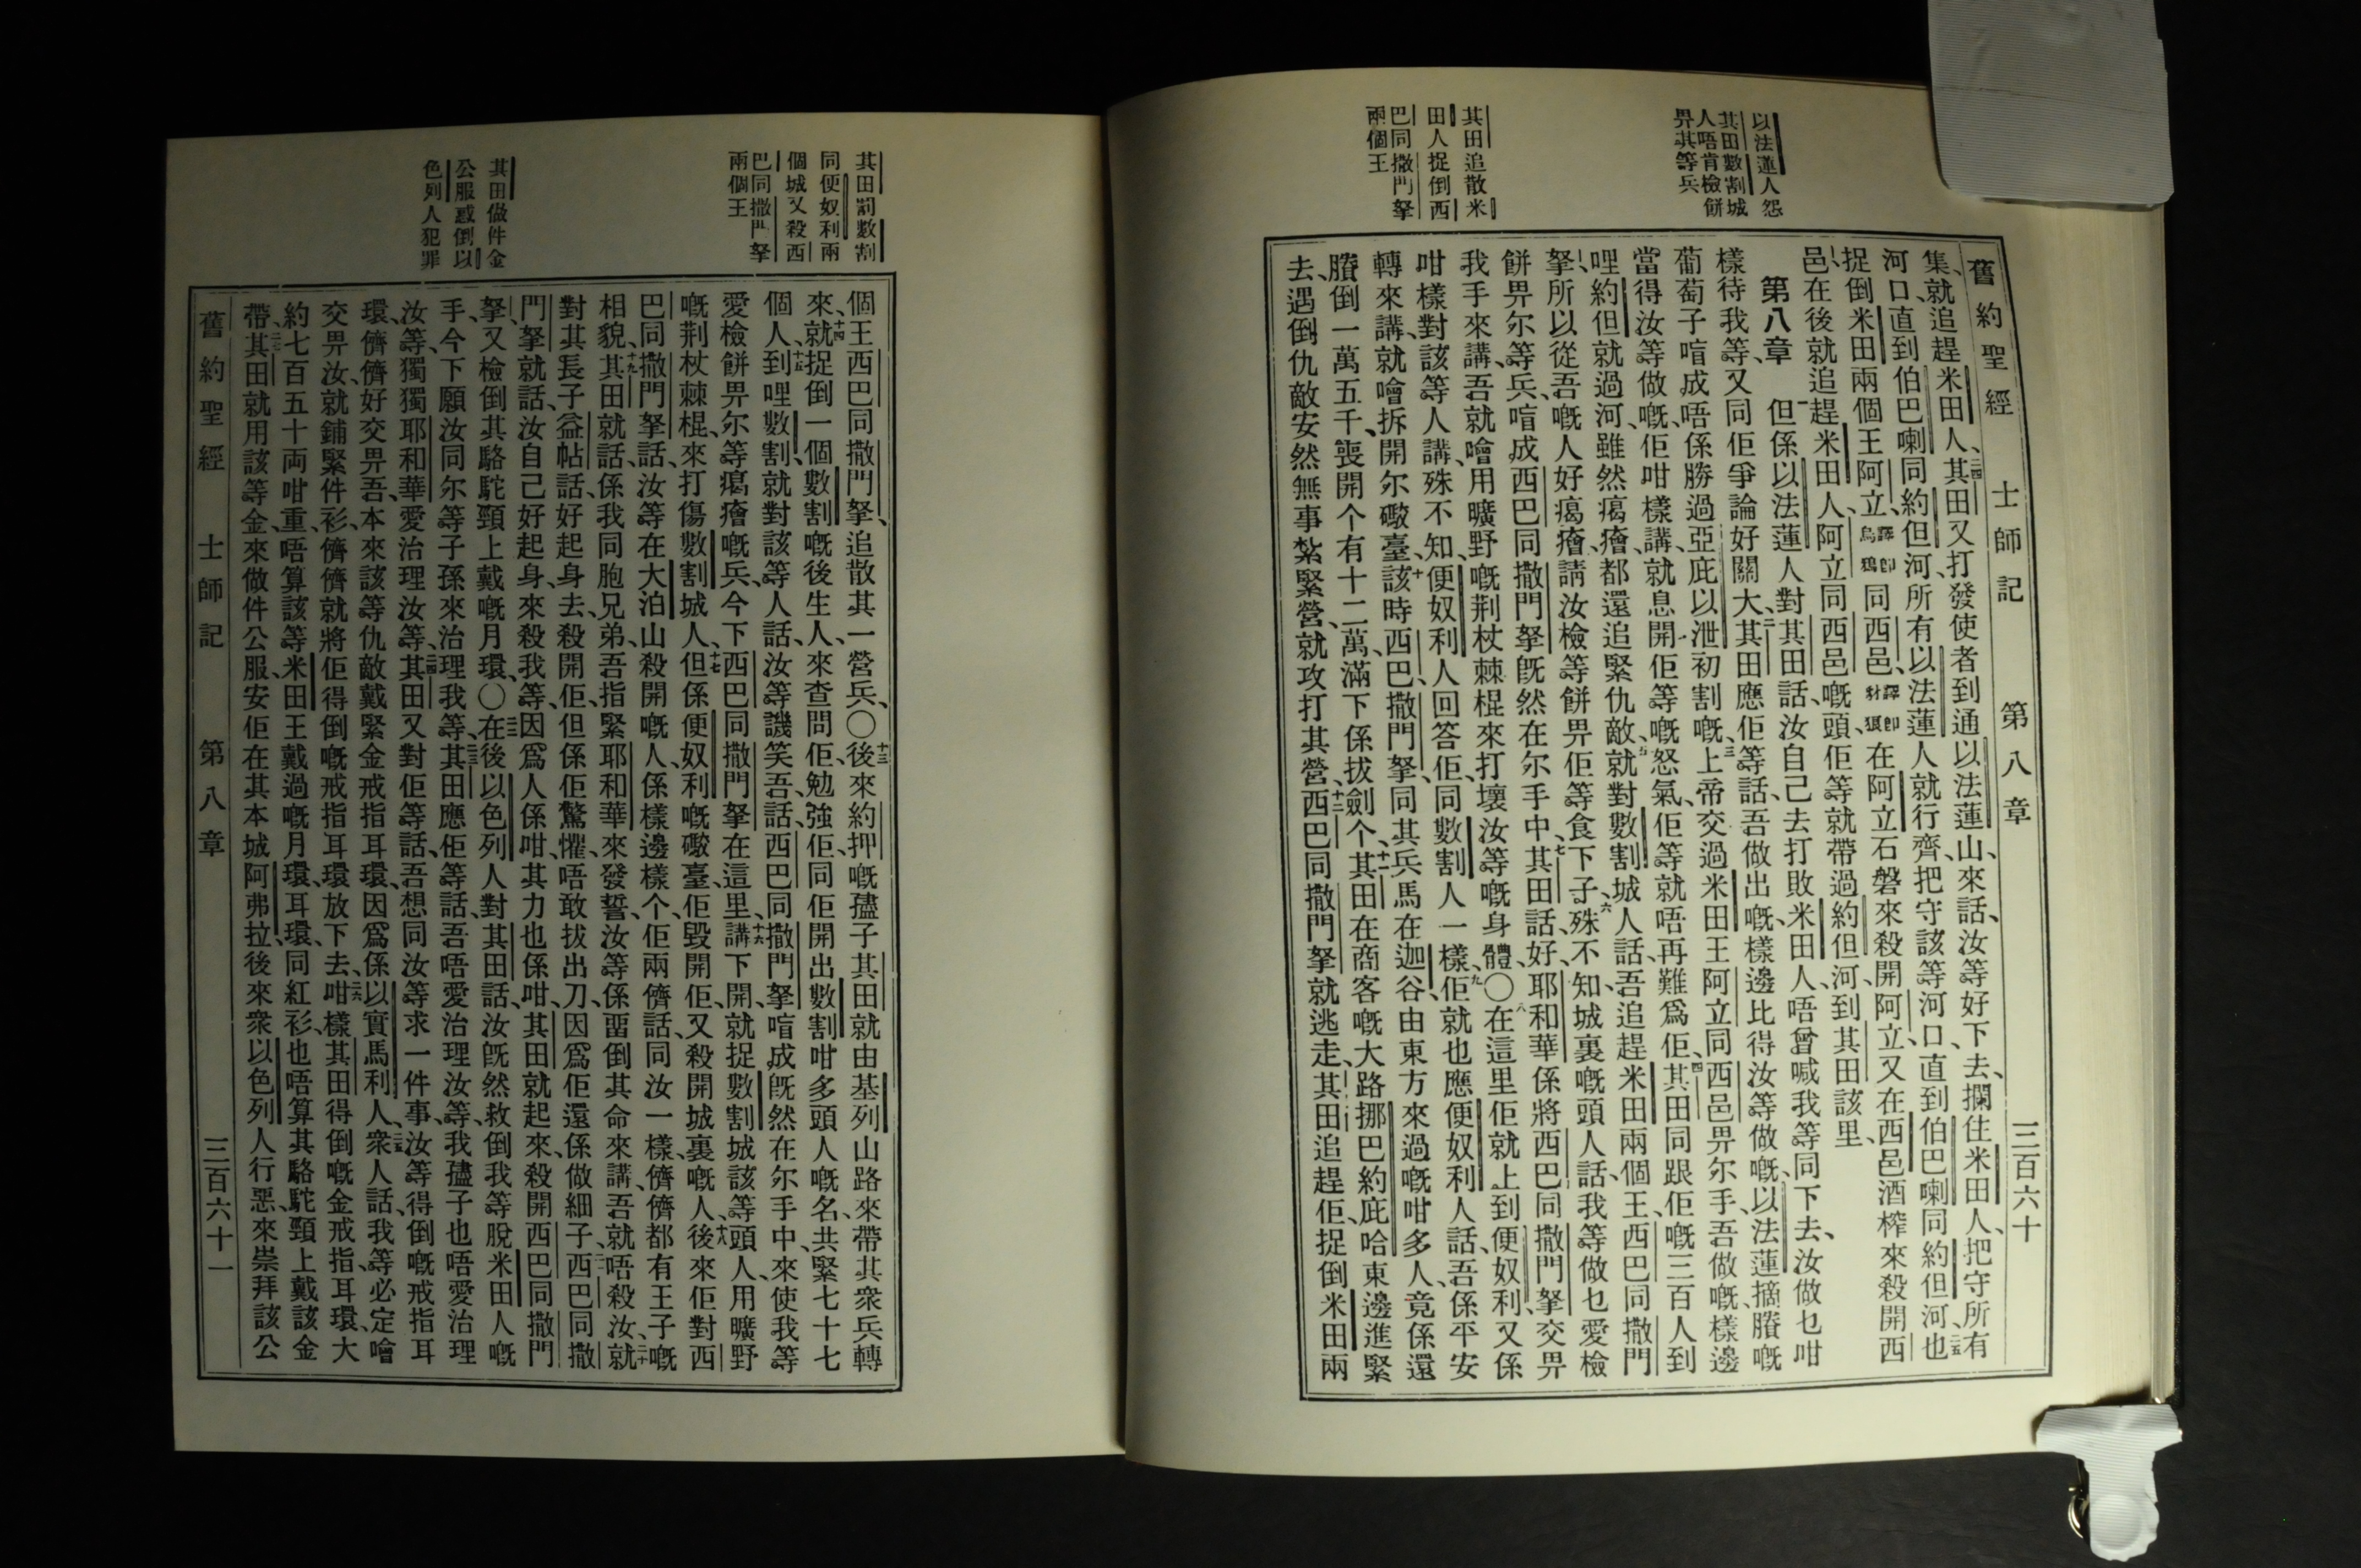 以法蓮人怨
其田數割城
人唔肯檢餅
畀其等兵
其田追散米
田人捉倒西
巴同撒門拏
兩個王
舊約聖經 士師記 第八章 三百六十
集、就追趕米田人、二四其田又打發使者到通以法蓮山、來話、汝等好下去、攔住米田人、把守所有
河口、直到伯巴喇同約但河、所有以法蓮人就行齊、把守該等河口、直到伯巴喇同約但河、二五也
捉倒米田兩個王阿立、譯卽烏鴉同西邑、譯卽豺狼在阿立石磐來殺開阿立、又在西邑酒榨來殺開西
邑、在後就追趕米田人、阿立同西邑嘅頭、佢等就帶過約但河、到其田該里、
第八章 一但係以法蓮人對其田話、汝自己去打敗米田人、唔曾喊我等同下去、汝做乜咁
樣待我等、又同佢爭論好關大、二其田應佢等話、吾做出嘅、樣邊比得汝等做嘅、以法蓮摘賸嘅
葡萄子、唷成唔係勝過亞庇以泄初割嘅、三上帝交過米田王阿立同西邑畀尔手、吾做嘅、樣邊
當得汝等做嘅、佢咁樣講、就息開佢等嘅怒氣、佢等就唔再難爲佢、四其田同跟佢嘅三百人到
哩約但就過河、雖然癘癐、都還追緊仇敵、五就對數割城人話、吾追趕米田兩個王、西巴同撒門
拏、所以從吾嘅人好癘癐、請汝檢等餅畀佢等食下子、六殊不知、城裏嘅頭人話、我等做乜愛檢
餅畀尔等兵、唷成西巴同撒門拏旣然在尔手中、七其田話、好、耶和華係將西巴同撒門拏交畀
我手來講、吾就噲用曠野嘅荆杖棘棍來打壞汝等嘅身體、〇八在這里佢就上到便奴利、又係
咁樣對該等人講、殊不知、便奴利人回答佢、同數割人一樣、九佢就也應便奴利人話、吾係平安
轉來講、就噲拆開尔礮臺、十該時西巴、撒門拏同其兵馬在迦谷、由東方來過嘅咁多人、竟係還
賸倒一萬五千、喪開个有十二萬、滿下係拔劍个、十一其田在商客嘅大路、挪巴約庇哈東邊進緊
去、遇倒仇敵安然無事紮緊營、就攻打其營、十二西巴同撒門拏就逃走、其田追趕佢、捉倒米田兩
其田罰數割
同便奴利兩
個城又殺西
巴同撒門拏
兩個王
其田做件金
公服惑倒以
色列人犯罪
個王西巴同撒門拏、追散其一營兵、〇十三後來約押嘅孻子其田就由基列山路來帶其衆兵轉
來、十四就捉倒一個數割嘅後生人、來查問佢、勉強佢、同佢開出數割咁多頭人嘅名、共緊七十七
個人、十五到哩數割、就對該等人話、汝等譏笑吾、話、西巴同撒門拏、唷成旣然在尔手中、來使我等
愛檢餅畀尔等癘癐嘅兵、今下西巴同撒門拏在這里、十六講下開、就捉數割城該等頭人、用曠野
嘅荆杖棘棍、來打傷數割城人、十七但係便奴利嘅礮臺、佢毀開佢、又殺開城裏嘅人、十八後來佢對西
巴同撒門拏話、汝等在大泊山殺開嘅人、係樣邊樣个、佢兩儕話、同汝一樣、儕儕都有王子嘅
相貌、十九其田就話、係我同胞兄弟、吾指緊耶和華來發誓、汝等係畱倒其命來講、吾就唔殺汝、二十就
對其長子益帖話、好起身去、殺開佢、但係佢驚懼、唔敢拔出刀、因爲佢還係做細子、二一西巴同撒
門拏就話、汝自己好起身、來殺我等、因爲人係咁、其力也係咁、其田就起來、殺開西巴同撒門
拏、又檢倒其駱駝頸上戴嘅月環、〇二二在後以色列人對其田話、汝旣然救倒我等脫米田人嘅
手、今下願汝同尔等子孫來治理我等、二三其田應佢等話、吾唔愛治理汝等、我孻子也唔愛治理
汝等、獨獨耶和華愛治理汝等、二四其田又對佢等話、吾想同汝等求一件事、汝等得倒嘅戒指耳
環、儕儕好交畀吾、本來該等仇敵戴緊金戒指耳環、因爲係以實馬利人、二五衆人話、我等必定噲
交畀汝、就鋪緊件衫、儕儕就將佢得倒嘅戒指耳環放下去、二六咁樣其田得倒嘅金戒指、耳環、大
約七百五十両咁重、唔算該等米田王戴過嘅月環、耳環、同紅衫、也唔算其駱駝頸上戴該金
帶、二七其田就用該等金、來做件公服、安佢在其本城阿弗拉、後來衆以色列人行惡、來崇拜該公
舊約聖經 士師記 第八章 三百六十一